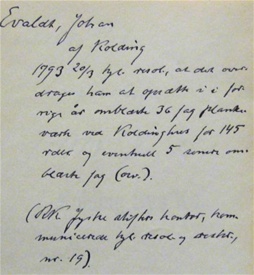 Evaldt, Johan
af Kolding
1793 20/3 kgl. resol., at det over-
drages ham at opsætte i i for-
rige år omblæste 36 fag planke-
værk ved Koldinghus for 145
rdlr og eventuelt 5 senere om-
blæste fag (ov.).
(RK Jyske stifters kontor, kom-
municerede kgl. resol. og
nr. 19).